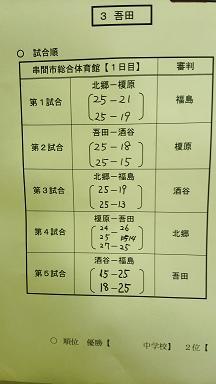 3 吾田
○ 試合順
串間市総合体育館【1日目】 審判
第1試合 北郷－榎原 福島
25－21
25－19
第2試合 吾田－酒谷 榎原
25－18
25－15
第3試合 北郷－福島 酒谷
25－19
25－13
第4試合 榎原－吾田 北郷
24－26
25
27－25
第5試合 酒谷－福島 吾田
15－25
18－25
○ 順位 優勝【 中学校】 2位【